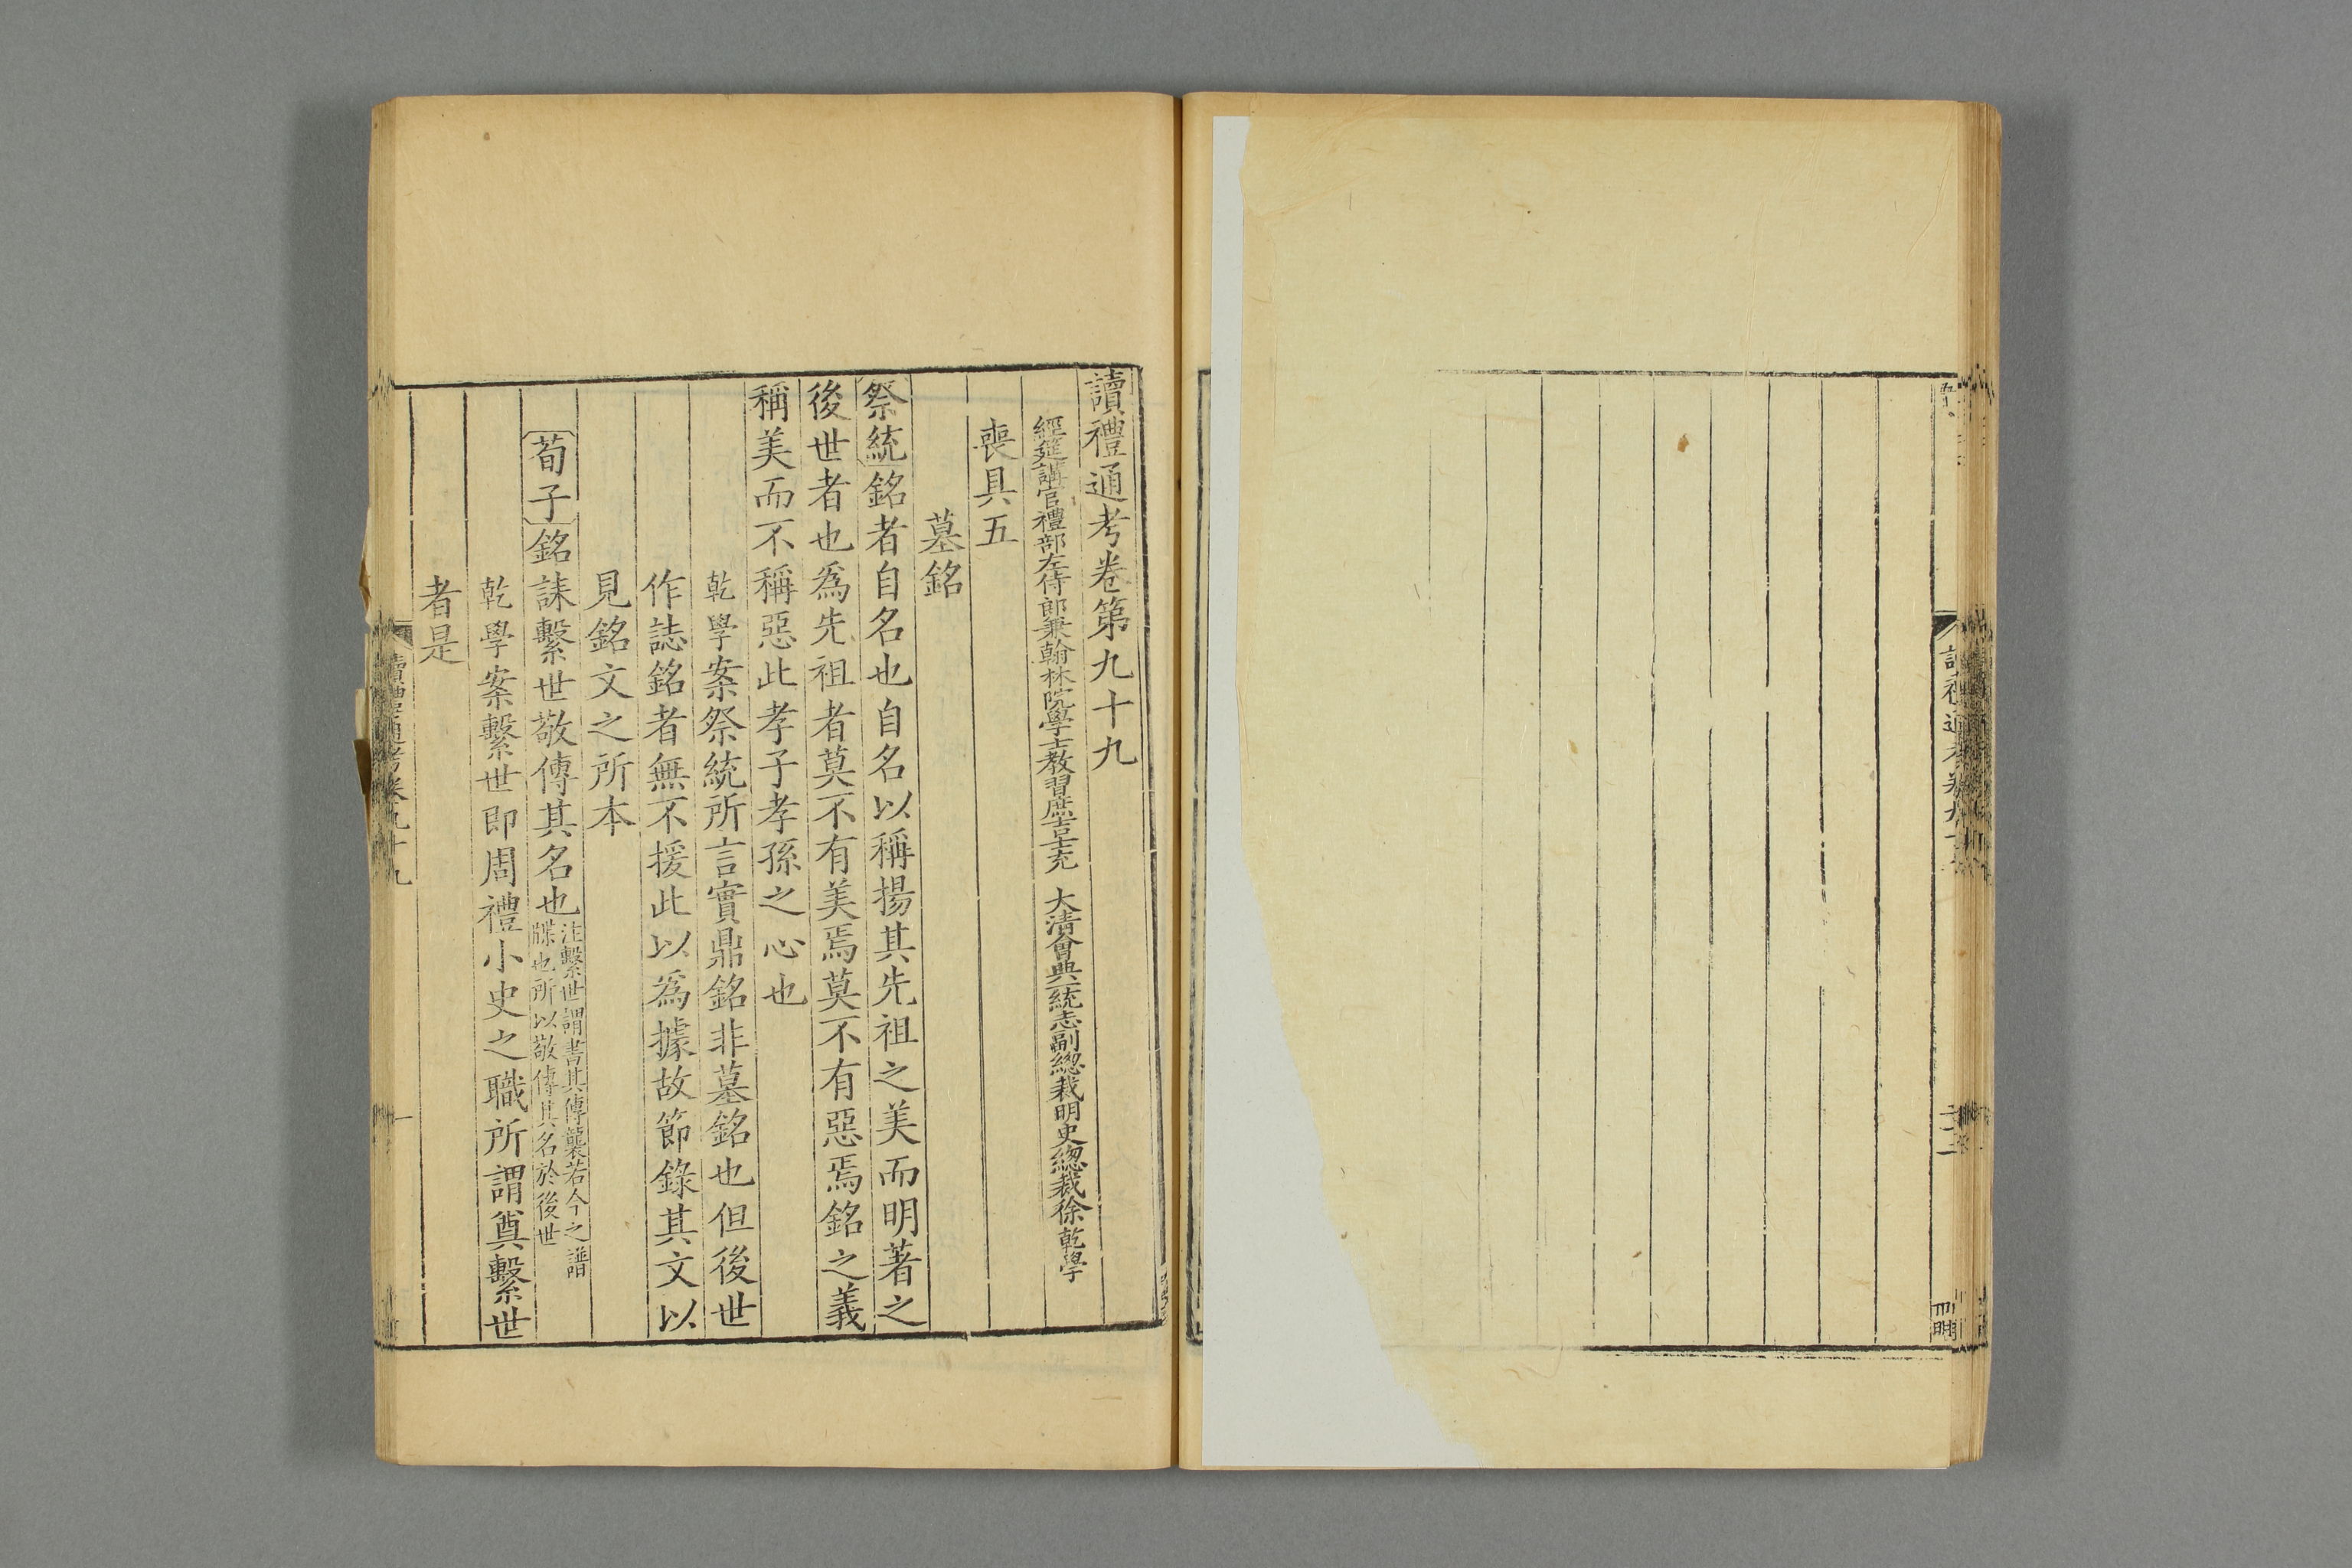 讀禮通考卷第九十九
經筵講官禮部左侍郎兼翰林院學士教習庶吉士充 大清會典一統志副總裁明史總裁徐乾學
喪具五
墓銘
祭統銘者自名也自名以稱揚其先祖之美而明著之
後世者也爲先祖者莫不有美焉莫不有惡焉銘之義
稱美而不稱惡此孝子孝孫之心也
乾學案祭統所言實鼎銘非墓銘也但後世
作誌銘者無不援此以爲據故節錄其文以
見銘文之所本
荀子銘誄繫世敬傳其名也注繫世謂書其傳襲若今之譜
牒也所以敬傳其名於後世
乾學案繫世即周禮小史之職所謂奠繫世
者是
讀禮通考卷九十九
一